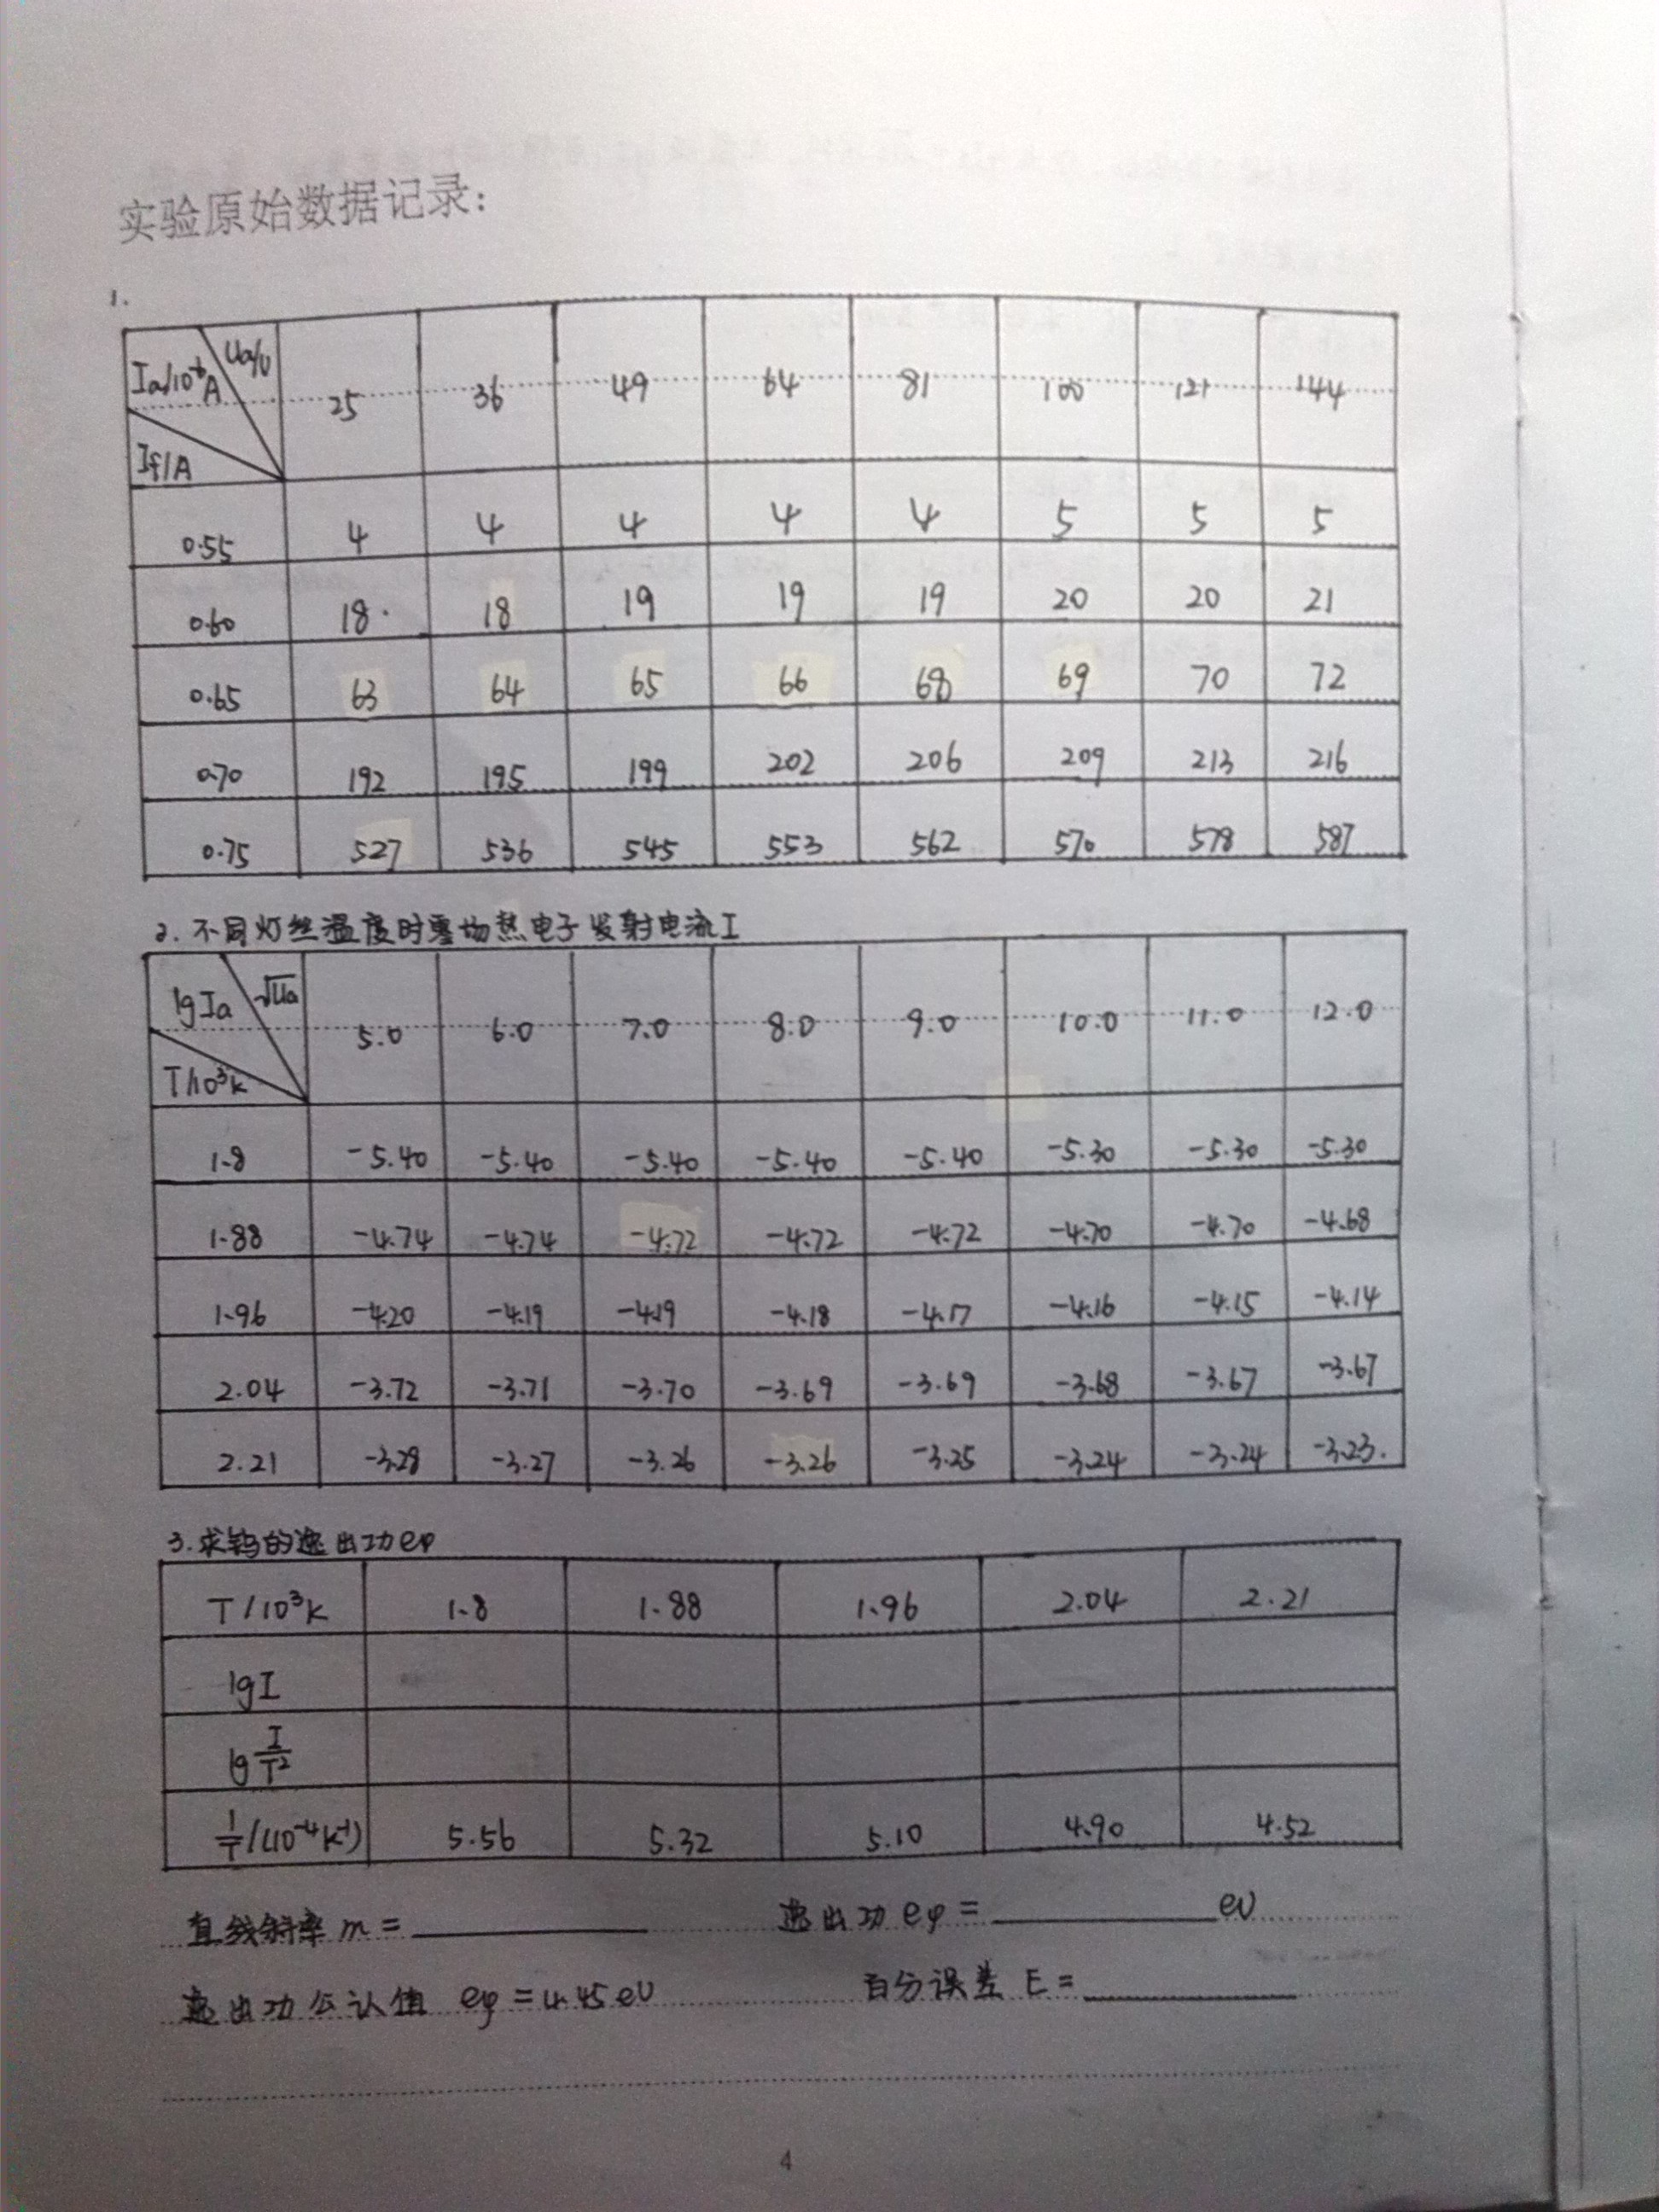 实验原始数据记录:
1.
Ia/10⁻⁶A Ua/V If/A 25 36 49 64 81 100 121 144
0.55 4 4 4 4 4 5 5 5
0.60 18 18 19 19 19 20 20 21
0.65 63 64 65 66 68 69 70 72
0.70 192 195 199 202 206 209 213 216
0.75 527 536 545 553 562 570 578 587
2. 不同灯丝温度时零场热电子发射电流I
lgIa √Ua T/10³K 5.0 6.0 7.0 8.0 9.0 10.0 11.0 12.0
1.8 -5.40 -5.40 -5.40 -5.40 -5.40 -5.30 -5.30 -5.30
1.88 -4.74 -4.74 -4.72 -4.72 -4.72 -4.70 -4.70 -4.68
1.96 -4.20 -4.19 -4.19 -4.18 -4.17 -4.16 -4.15 -4.14
2.04 -3.72 -3.71 -3.70 -3.69 -3.69 -3.68 -3.67 -3.67
2.21 -3.28 -3.27 -3.26 -3.26 -3.25 -3.24 -3.24 -3.23.
3. 求钨的逸出功eφ
T/10³K 1.8 1.88 1.96 2.04 2.21
lgI
lg I/T²
1/T/(10⁻⁴K⁻¹) 5.56 5.32 5.10 4.90 4.52
直线斜率 m = 逸出功 eφ = eV
逸出功公认值 eφ = 4.45eV 百分误差 E =
4